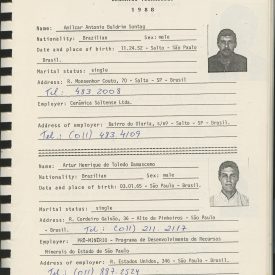 1 9 8 8
Name: Amilcar Antonio Buldrim Sontag
Nationality: Brazilian Sex: male
Date and place of birth: 11.24.52 - Salto - São Paulo
Brasil.
Marital status: single
Address: R. Monsenhor Couto, 70 - Salto - SP - Brasil
Tel: 483 2008
Employer: Cerâmica Saltente Ltda.
Address: Bairro da Olaria, s/nº - Salto - SP - Brasil.
Tel: (011) 483.4109
Name: Artur Henrique de Toledo Damasceno
Nationality: Brazilian Sex: male
Date and place of birth: 03.01.65 - São Paulo - Brasil.
Marital status: single
Address: R. Cordeiro Galvão, 36 - Alto de Pinheiros - São Paulo
- Brasil.
Tel: (011) 211.2117
Employer: PRÓ-MINÉRIO - Programa de Desenvolvimento de Recursos
Minerais do Estado de São Paulo
Address: R. Estados Unidos, 346 - São Paulo - Brasil
Tel: (011) 887.2524